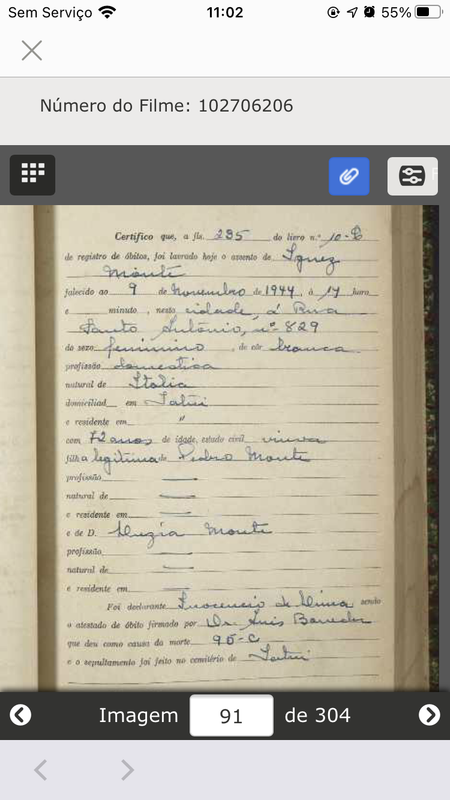 Sem Serviço 11:02 55%
Número do Filme: 102706206
Certifico que, a fls. 235 do livro n.º 10-C
de registro de óbitos, foi lavrado hoje o assento de Ignez
Monte
falecido ao 9 de Novembro de 1944, à 14 hora
e minuto, nesta cidade, à Rua
Santo Antônio, nº 829
do sexo feminino, de côr branca
profissão domestica
natural de Italia
domiciliad em Tatuí
e residente em "
com 72 anos de idade, estado civil viuva
filha legitima de Pedro Monte
profissão
natural de
e residente em
e de D. Monte
profissão
natural de
e residente em
Foi declarante Inocencio de sendo
o atestado de óbito firmado por Dr. Luis
que deu como causa da morte 95-C
e o sepultamento foi feito no cemitério de Tatuí
Imagem 91 de 304